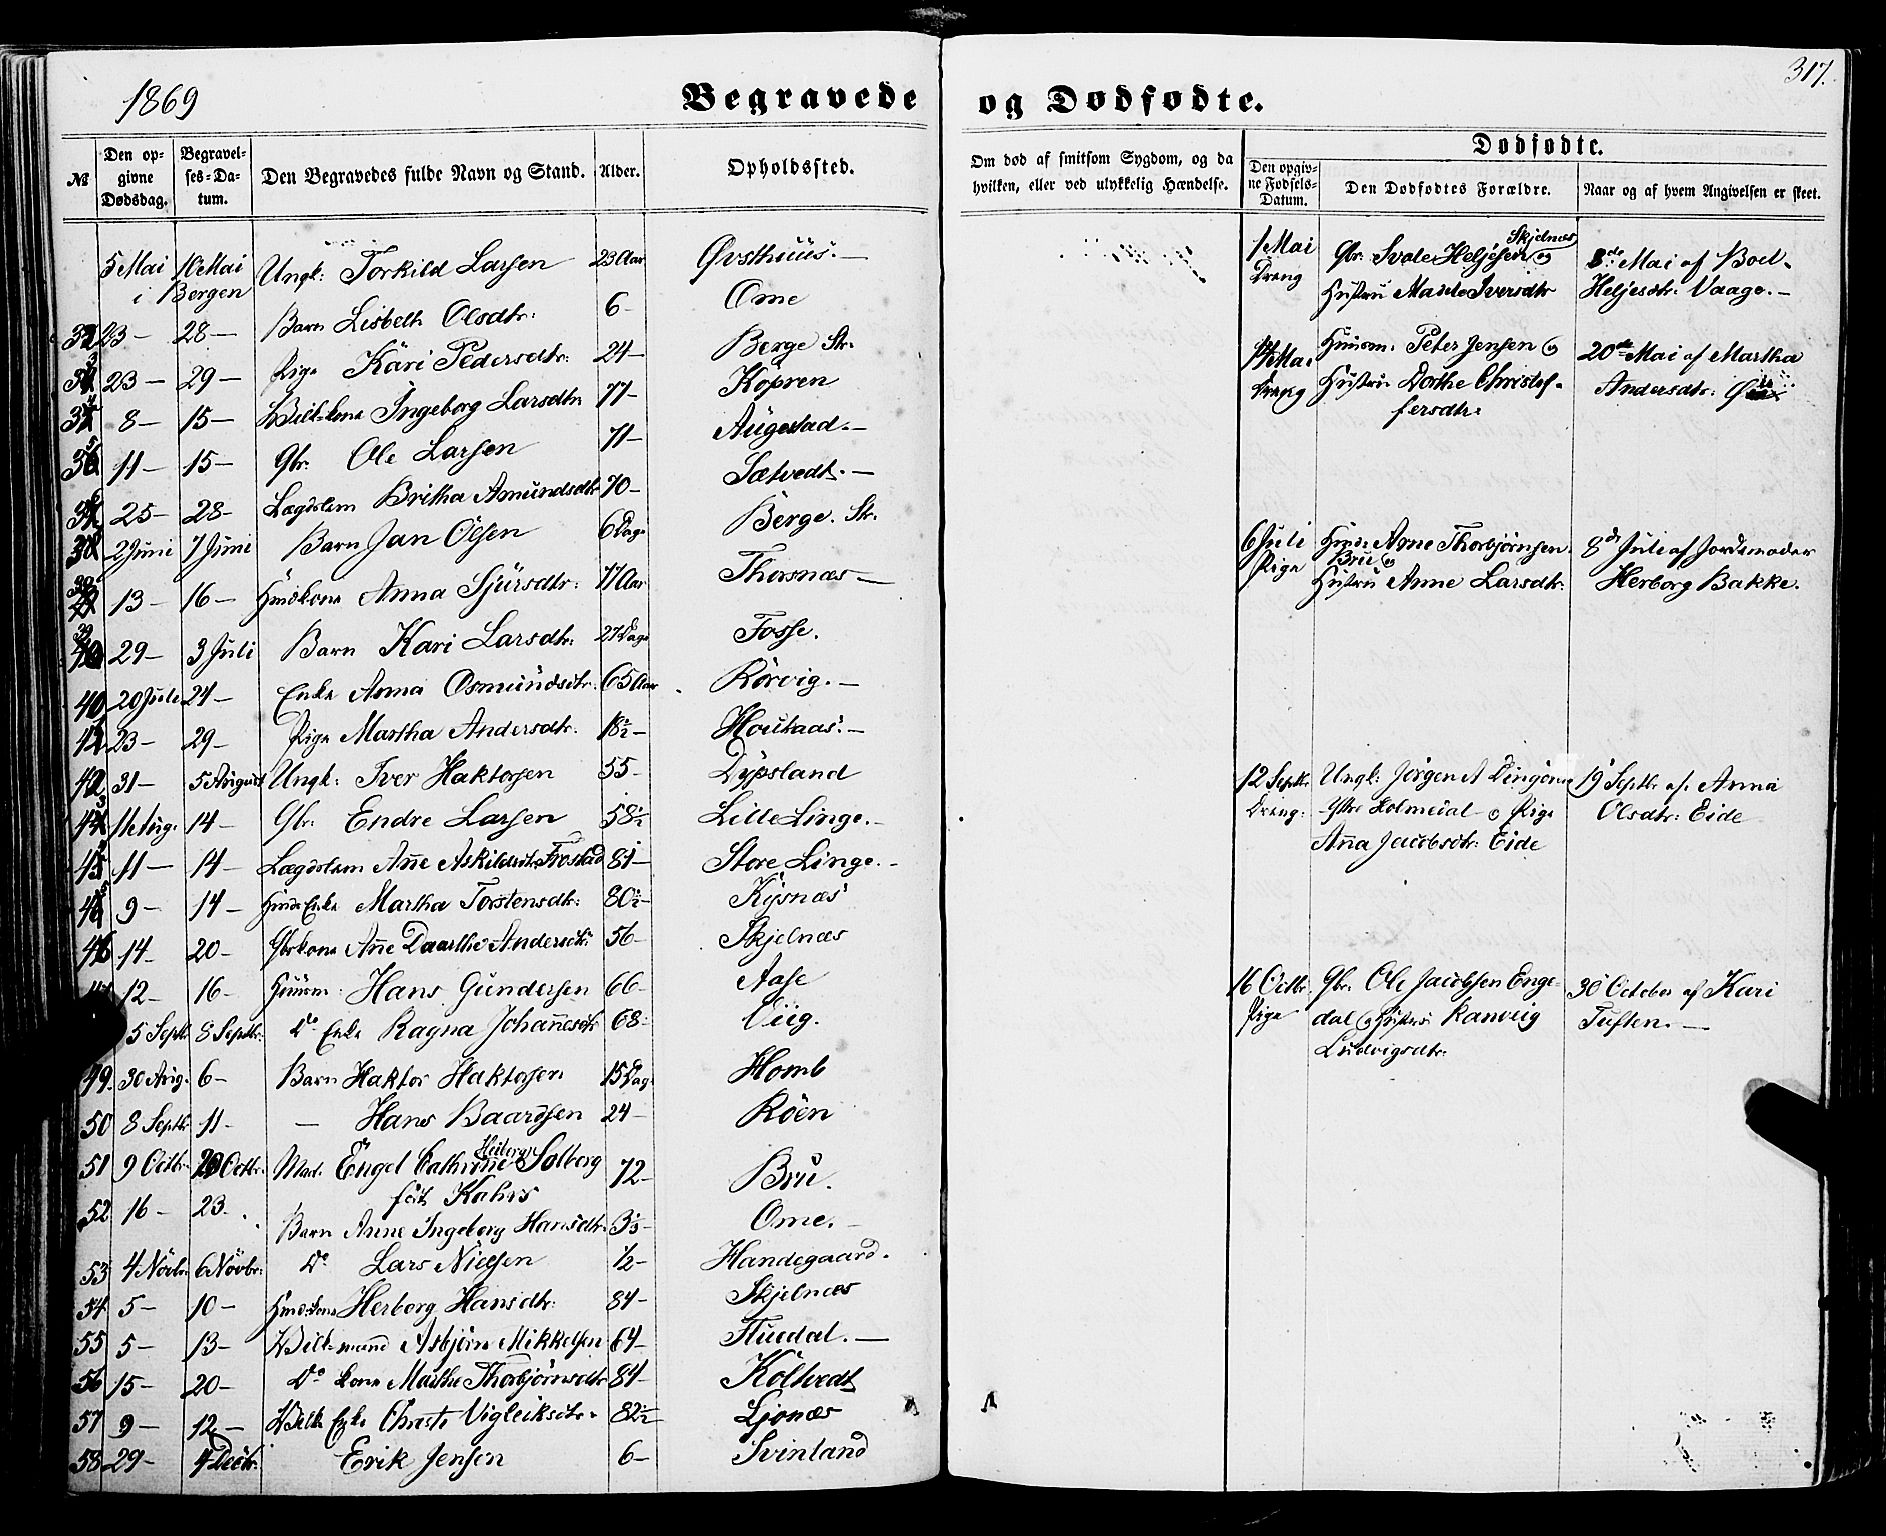 1869
Begravede
og Dødfødte.
317.
№
Den opgivne Dødsdag.
Begravelses-Datum.
Den Begravedes fulde Navn og Stand.
Alder.
Opholdssted.
Om død af smitsom Sygdom, og da hvilken, eller ved ulykkelig Hændelse.
Dødfødte.
Den opgivne Fødsels-Datum.
Den Dødfødtes Forældre.
Naar og af hvem Angivelsen er skeet.
5 Mai i 10 Mai Bergen Ungk: Torkild Larsen 23 Aar Øvsthuus.—
23— 28— Barn Lisbeth Olsdtr: 6— Ome
23— 29— Pige Kari Pedersdtr: 24— Berge Str.
8— 15— Kone Ingeborg Larsdtr 77— Kopren
11— 15— Gbr. Ole Larsen 71— Augestad.—
25— 28— Lægdslem Britha Amundsdtr 70— Sætvedt.—
2 Juni 7 Juni Barn Jan Olsen 6 Dage Berge. Str.
13— 16— Huuskone Anna Sjursdtr: 77 Aar Thorsnæs—
29— 3 Juli Barn Kari Larsdtr: 27 Dage Fosse.
40 20 Juli 24— Enke Anna Osmundsdtr. 65 Aar Rörvig.—
23— 29— Pige Martha Andersdtr. 18½— Houkaas.—
42 31— 5 August Ungk: Iver Haktorsen 55— Dypsland
11 Aug. 14— Gbr. Endre Larsen 58½ Lille Linge.—
11— 14— Lægdslem Ane Askildsdtr Frostad 81— Store Linge.—
9— 14— Huus Enke Martha Torstensdtr: 80½— Kysnæs
46 14— 20— Gbrkone Ane Daarthe Andersdtr. 56— Skjelnæs
12— 16— Huusm. Hans Gundersen 66— Aase
5 Septbr 8 Septbr. Do Enke Ragna Johanesdtr 68—
49. 30 Aug. 6— Barn Haktor Haktorsen 15 Dag. Homb
50 8 Septbr 11— — Hans Baardsen 24— Röen
51 9 Octbr. 20 Octbr. Mad. Engel Cathrine Solberg
fød Kahrs 72— Bru.
52 16— 23— Barn Anne Ingeborg Hansdtr. 3⅓— Ome.—
53 4 Növbr. 6 Növbr. Do Lars Nielsen ½— Handegaard.
54 5— 10— Huuskone Herborg Hansdtr. 84— Skjelnæs
55 5— 13— Asbjörn Mikkelsen 64— Fluedal.—
56 15— 20— Do kone Marthe Thorbjörnsdtr 81— Költvedt
57 9— 12— Enke Christi Vigleiksdtr. 82½— Ljonæs
58 29— 4 Decbr. Erik Jensen 6— Svinland
1 Mai
Dreng
Skjelnæs
Gbr. Svale Heljesen og
Hustru Marthe Iversdtr
8de Mai af Boel
Heljesdtr. Vaage.—
14 Mai
Dreng
Huusm. Peter Jensen og
Hustru Dorthe Christof-
fersdtr.
20de Mai af Martha
Andersdtr.
6 Juli
Pige
Huusm. Arne Thorbjörnsen
Bru og
Hustru Anne Larsdtr.
8de Juli af Jordemoder
Herborg Bakke.
12 Septbr.
Dreng.
Ungk: Jörgen A
Ystre Holmeial og Pige
Anna Jacobsdtr. Eide
19 Septbr. af Anna
Olsdtr. Eide
16 Octbr.
Pige
Gbr. Ole Jacobsen Enge-
dal og Hustru Ranveig
Ludvigsdtr.
30 October af Kari
Tuften.—